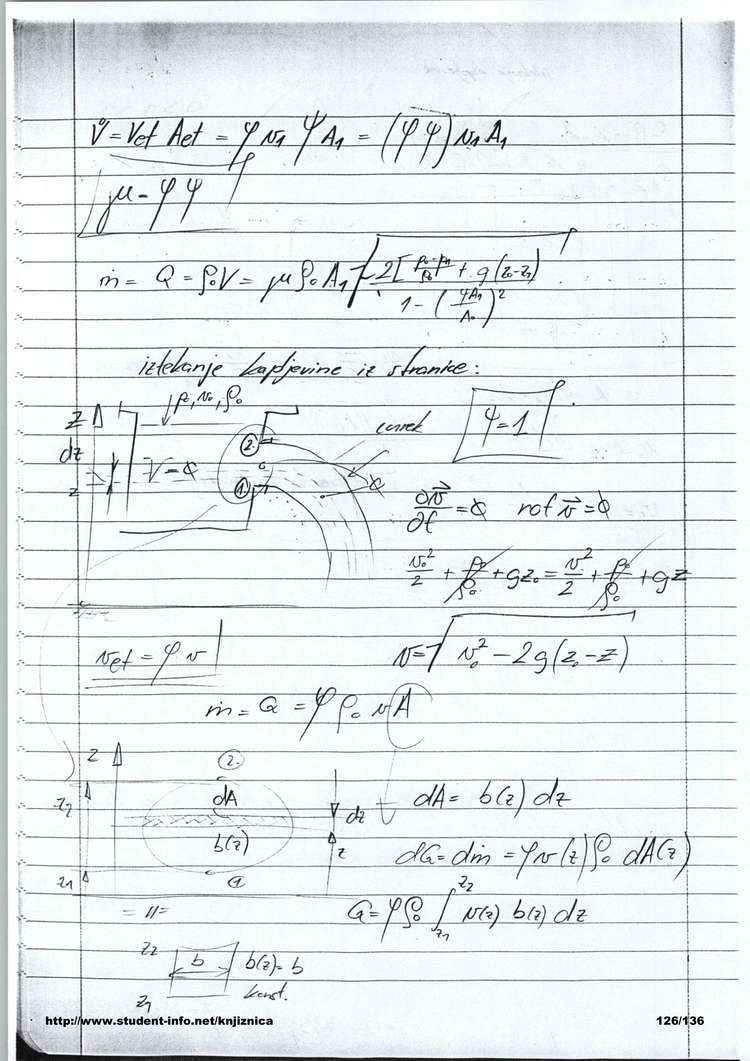 V̇ = v_et A_et = φ v₁ ψ A₁ = (φ ψ) v₁ A₁
μ = φ ψ
ṁ = Q = ρ₀ V̇ = μ ρ₀ A₁ √( 2[ (p₀-p₁)/ρ₀ + g(z₀-z₁) ] / ( 1 - (ψA₁/A₀)² ) )
iztekanje kapljevine iz stranice:
z p₀, v₀, ρ₀
ψ = 1
curek
dz
2.
V = ∅
z
1
∂v⃗/∂t = ∅ rot v⃗ = ∅
v₀²/2 + p₀/ρ₀ + gz₀ = v²/2 + p₀/ρ₀ + gz
v_et = φ v
v = √( v₀² - 2g(z₀-z) )
ṁ = Q = φ ρ₀ v A
z
2.
z₂
dA
dz
dA = b(z) dz
b(z)
z
dQ = dṁ = φ v(z) ρ₀ dA(z)
z₁
1
Q = φ ρ₀ ∫_{z₁}^{z₂} v(z) b(z) dz
= 11 =
z₂
b b(z) = b
konst.
z₁
http://www.student-info.net/knjiznica 126/136